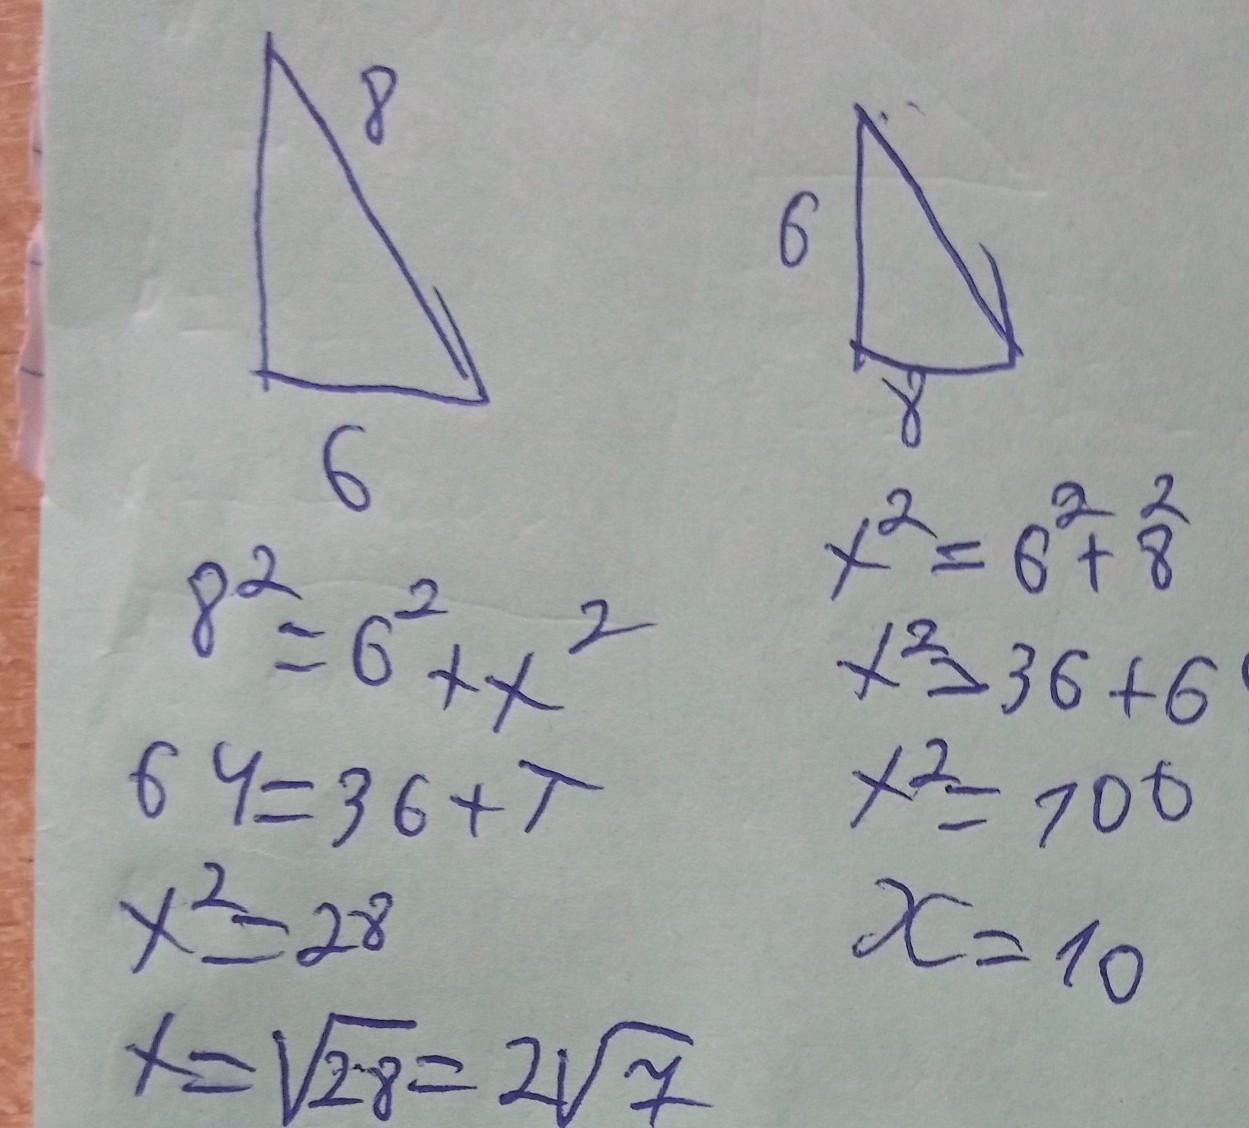 8
6
8² = 6² + x²
64 = 36 + T
x² = 28
x = √28 = 2√7
6
8
x² = 6² + 8²
x² = 36 + 6
x² = 100
x = 10